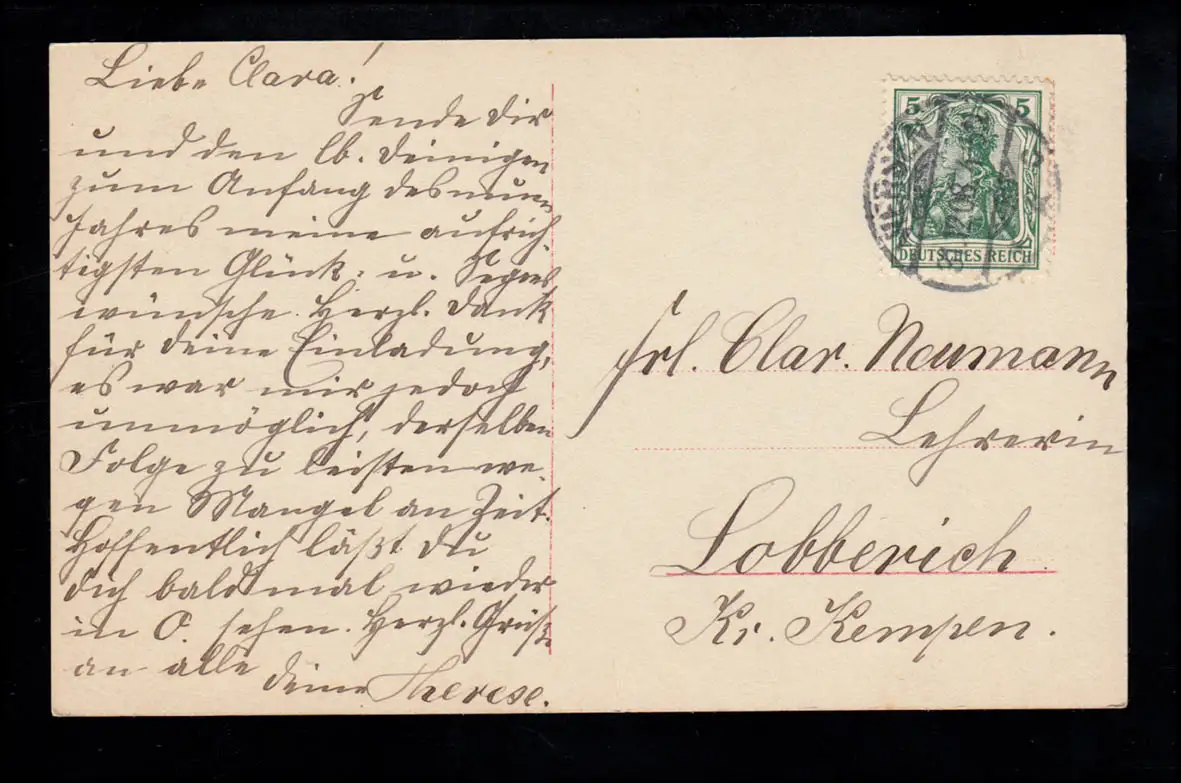 Liebe Clara!
Sende Dir
und den lb. Deinigen
zum Anfang des neuen
Jahres meine aufrich
tigsten Glück- u. Segens
wünsche. Herzl. Dank
für Deine Einladung,
es war mir jedoch
unmöglich, derselben
Folge zu leisten we-
gen Mangel an Zeit.
Hoffentlich läßt Du
Dich bald mal wieder
in O. sehen. Herzl. Grüße
an alle
Deine Therese.
5 5
DEUTSCHES REICH
Frl. Clar. Neumann
Lehrerin
Lobberich.
Kr. Kempen.